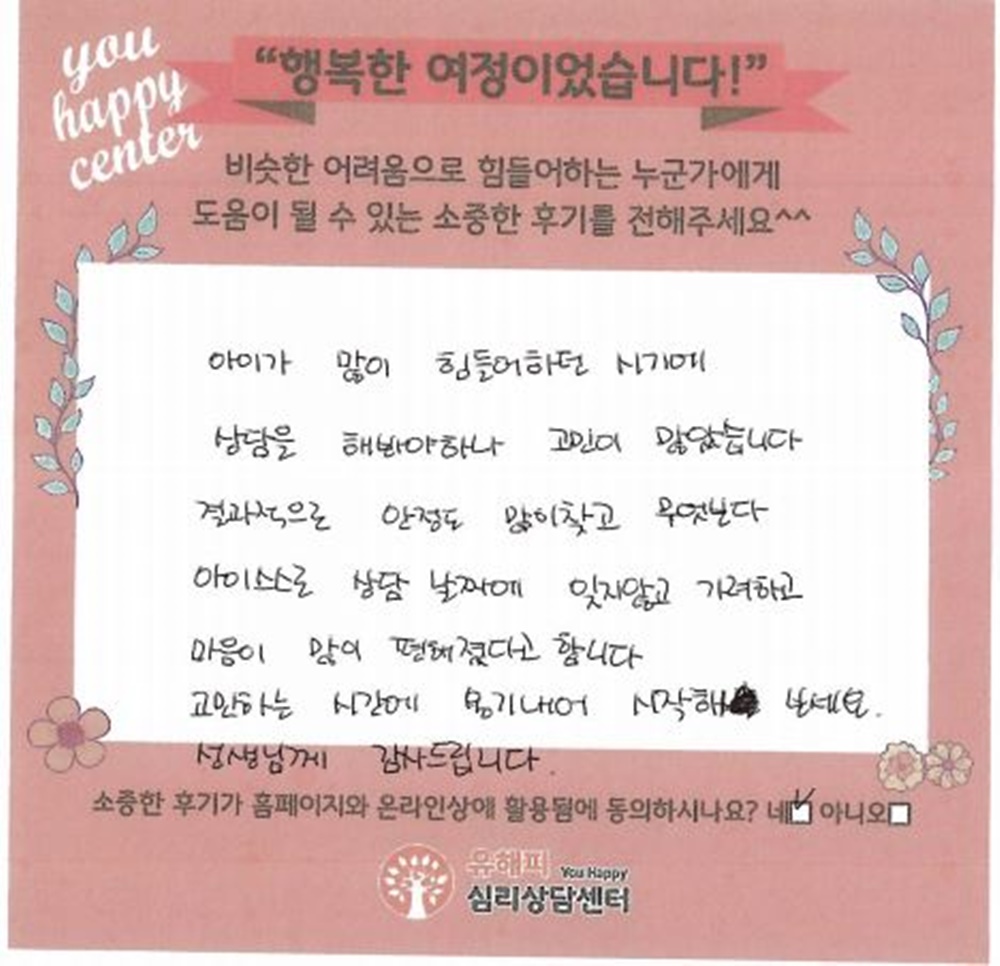 you
happy
center
“행복한 여정이었습니다!”
비슷한 어려움으로 힘들어하는 누군가에게
도움이 될 수 있는 소중한 후기를 전해주세요^^
아이가 많이 힘들어하던 시기에
상담을 해봐야하나 고민이 많았습니다
결과적으로 안정도 많이찾고 무엇보다
아이스스로 상담 날짜에 잊지않고 가려하고
마음이 많이 편해졌다고 합니다
고민하는 시간에 용기내어 시작해 보세요.
선생님께 감사드립니다.
소중한 후기가 홈페이지와 온라인상에 활용됨에 동의하시나요? 네 아니오
유해피 You Happy
심리상담센터